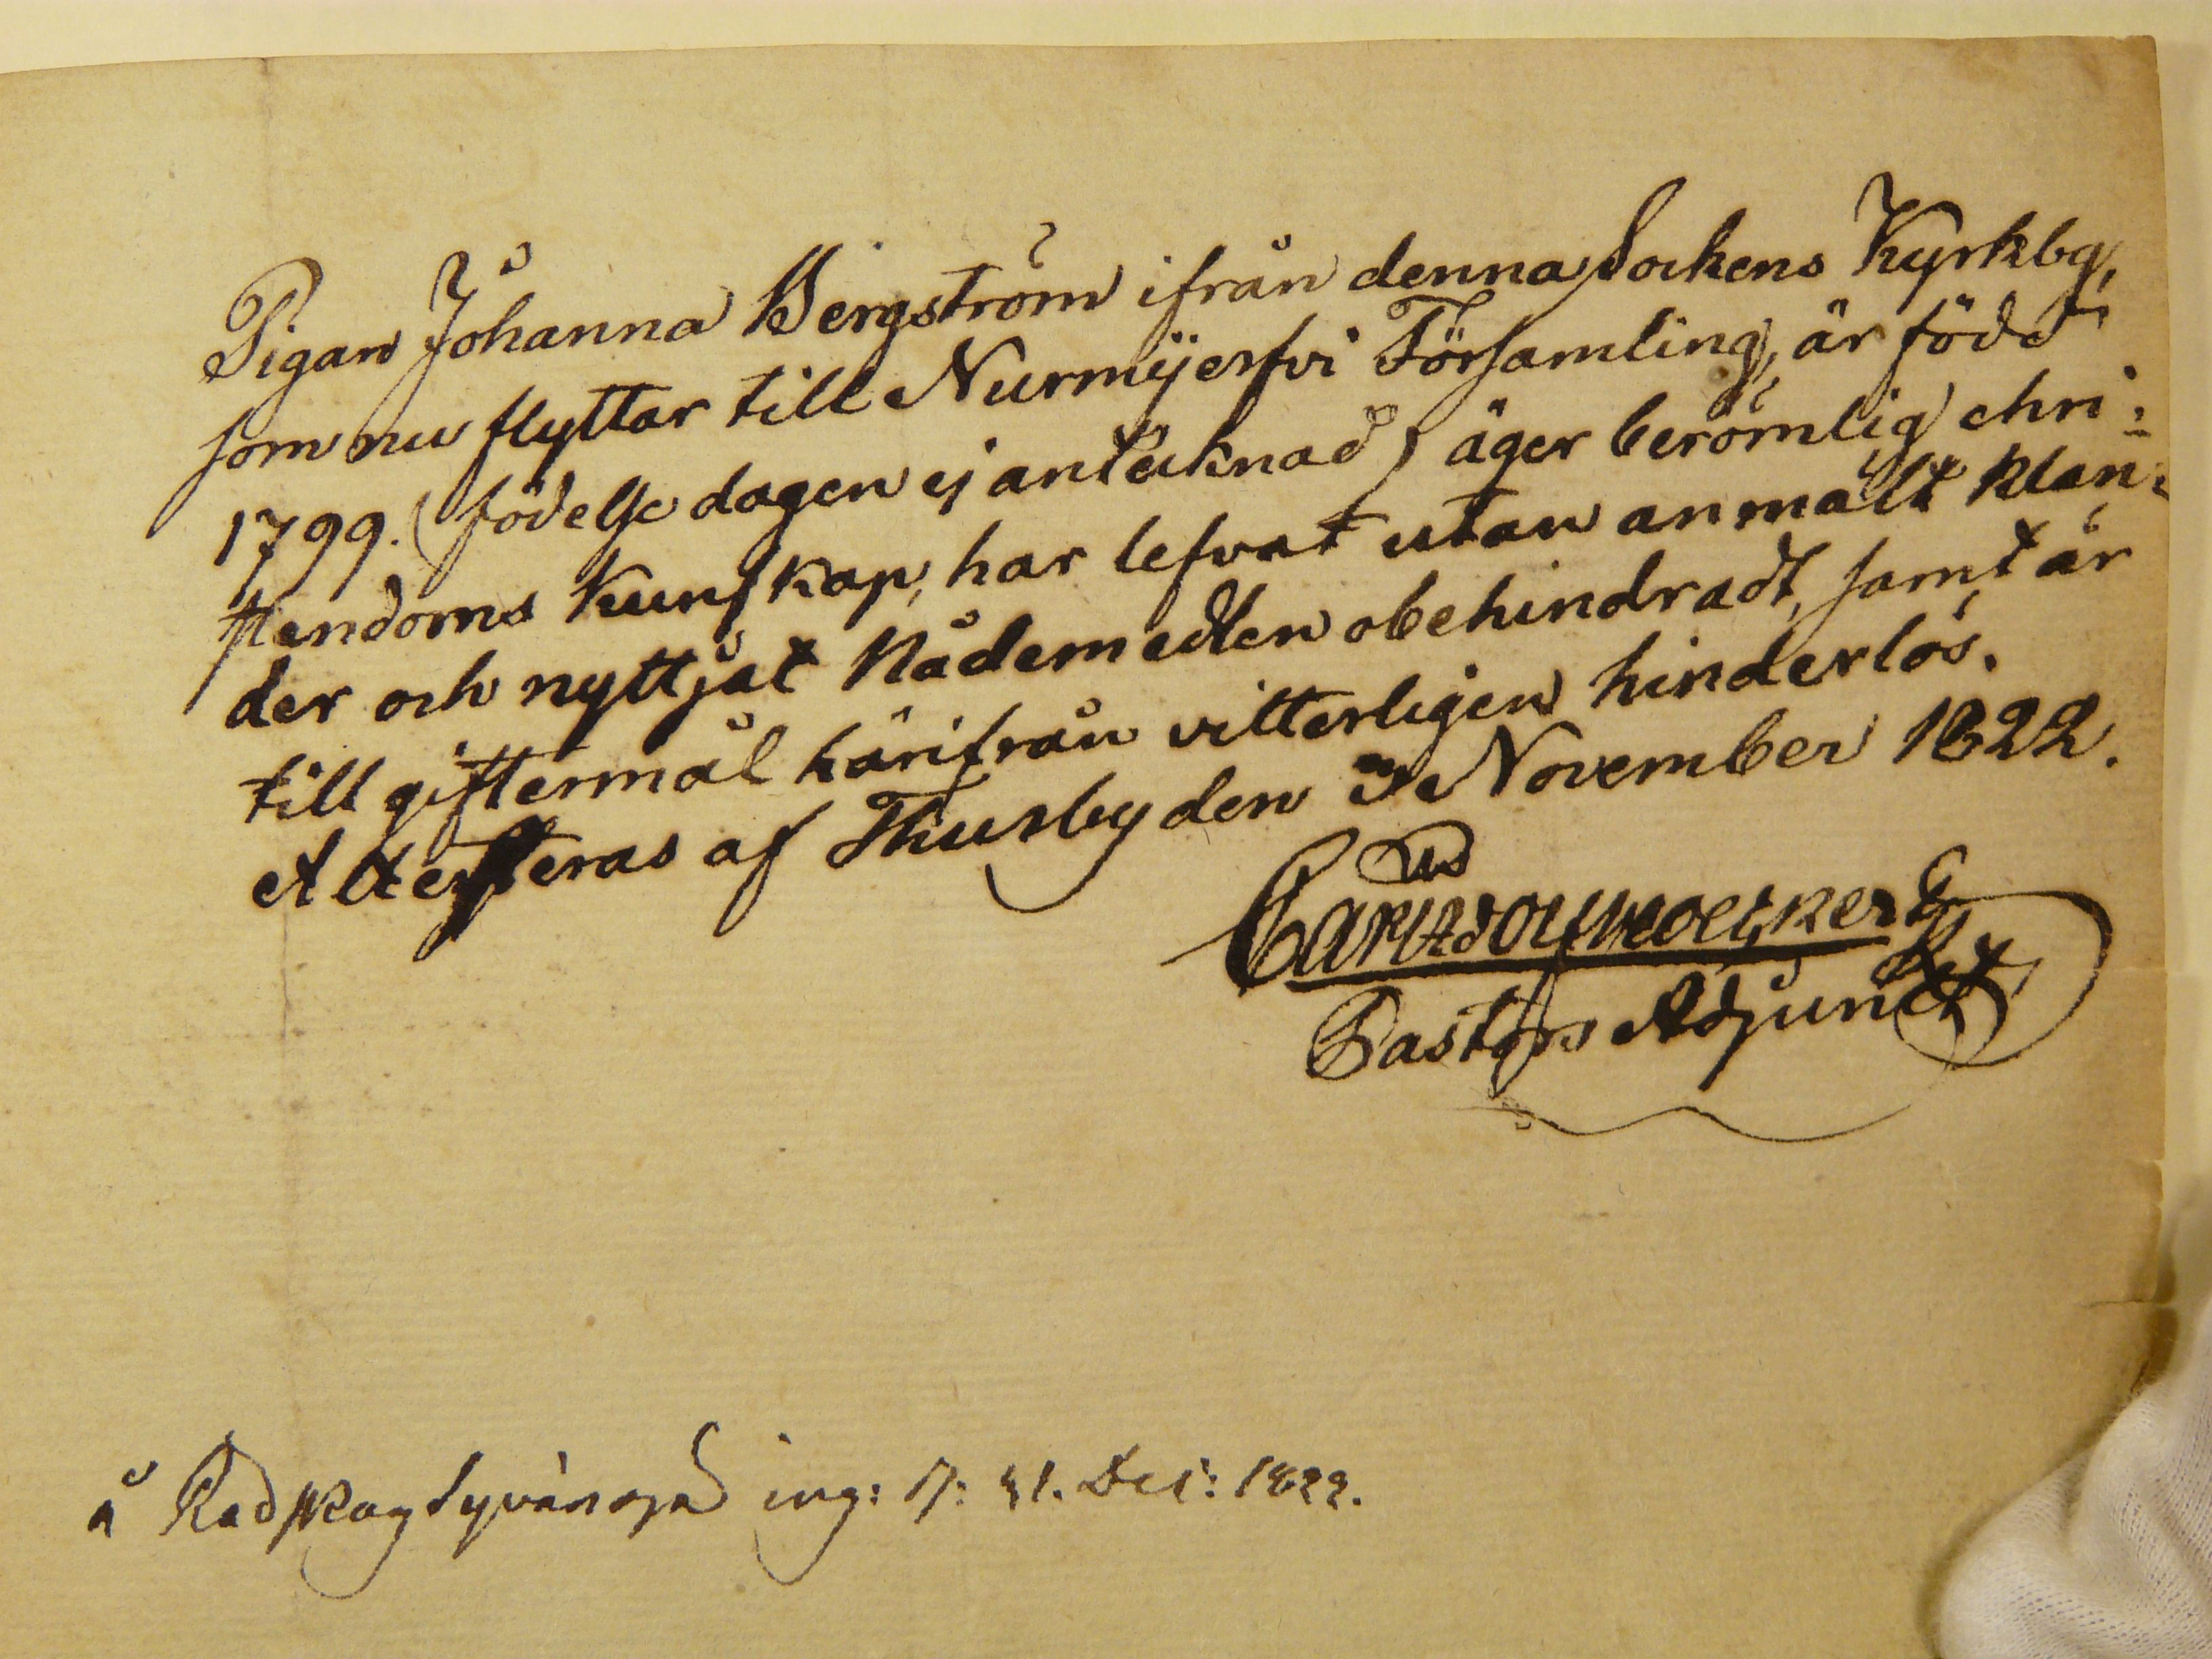 Pigan Johanna Bergström ifrån denna Sockens Kyrkby,
som nu flyttar till Nurmijerfvi Församling, är född
1799. (födelse dagen ej antecknad) äger berömlig chri-
stendoms kunskap, har lefvat utan anmält klan-
der och nyttjat Nådemedlen obehindradt, samt är
till giftermål härifrån vitterligen hinderlös.
Attesteras af Thusby den 3 November 1822.
Pastors Adjunct,
å ing: Dec: 1822.